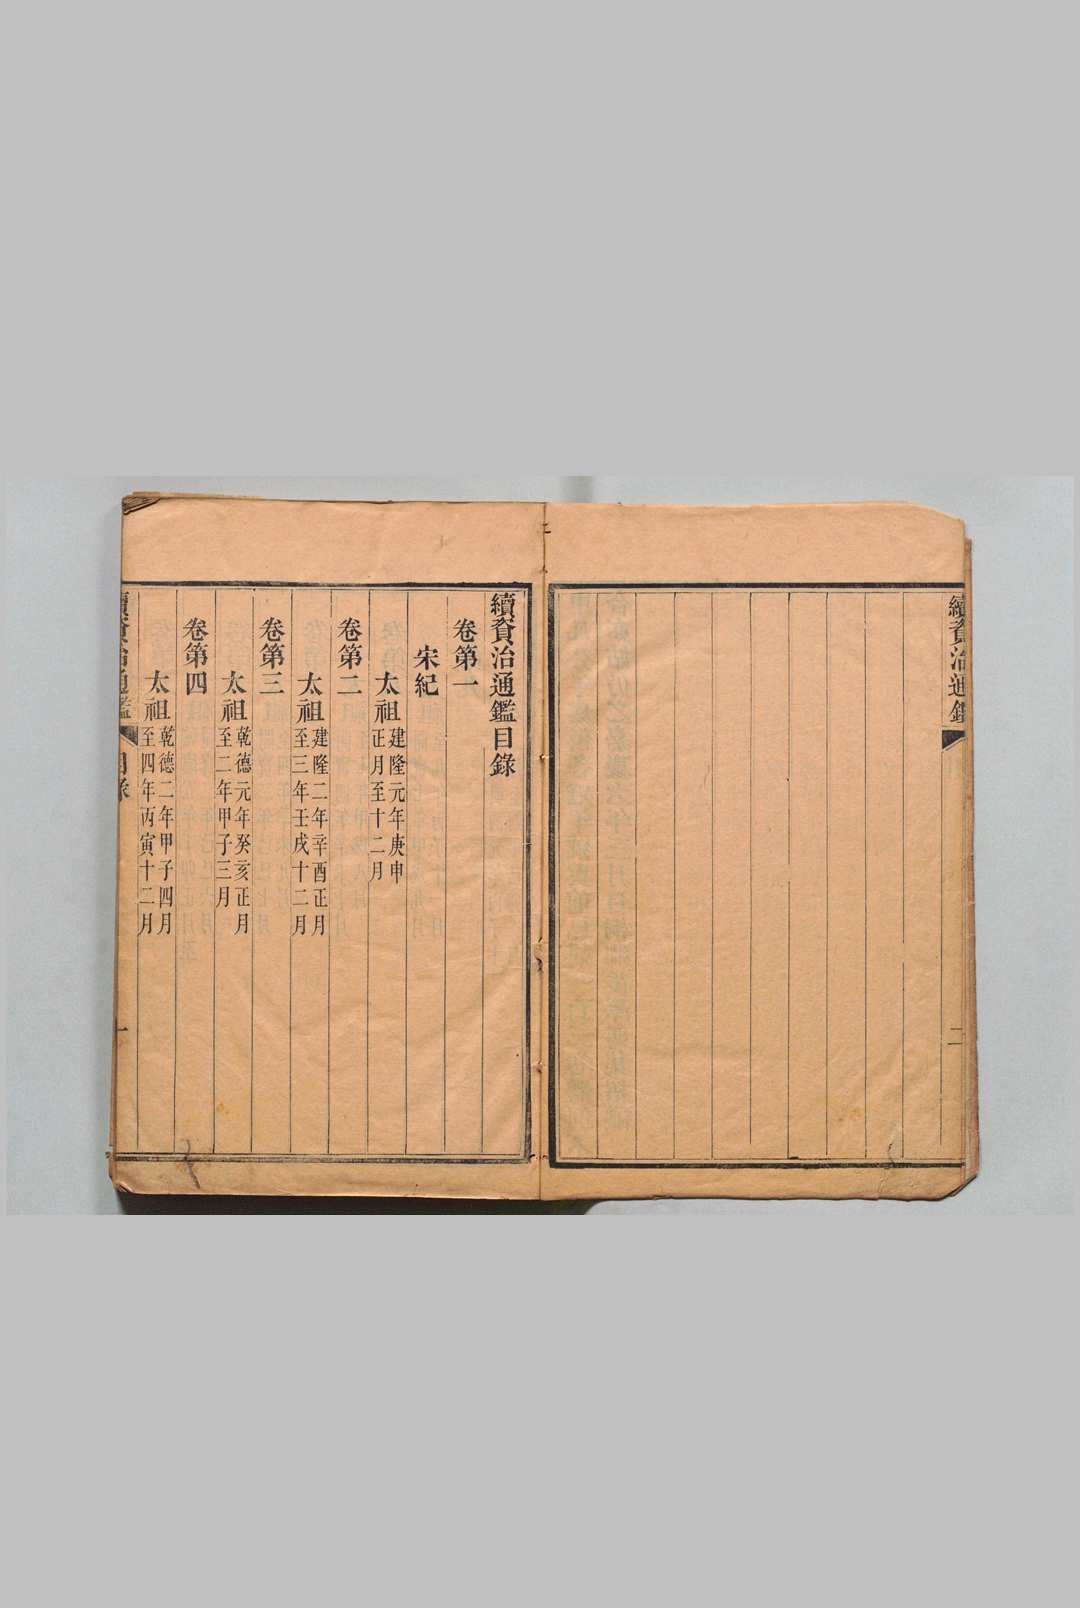 續資治通鑑
二
續資治通鑑目錄
卷第一
宋紀
太祖建隆元年庚申
正月至十二月
卷第二
太祖建隆二年辛酉正月
至三年壬戌十二月
卷第三
太祖乾德元年癸亥正月
至二年甲子三月
卷第四
太祖乾德二年甲子四月
至四年丙寅十二月
續資治通鑑
目錄
一